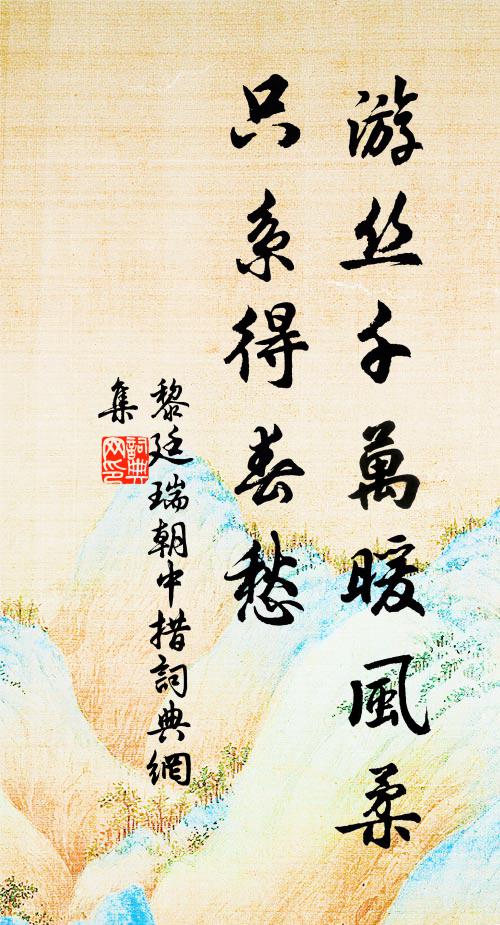 游丝千萬暖風柔
只系得春愁
黎廷瑞朝中措詞典網
集
詞典
网印